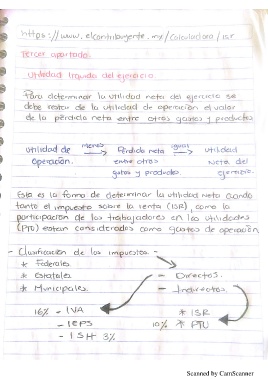 https://www.elcontribuyente.mx/calculadora/isr
Tercer apartado.
Utilidad liquida del ejercicio
Para determinar la utilidad neta del ejercicio se
debe restar de la utilidad de operación el valor
de la pérdida neta entre otros gastos y productos
utilidad de menos Pérdida neta igual utilidad
operación. entre otros neta del
gastos y productos. ejercicio.
Esta es la forma de determinar la utilidad neta cuando
tanto el impuesto sobre la renta (ISR), como la
participación de los trabajadores en las utilidades
(PTU) estan considerados como gastos de operación
- Clasificación de los impuestos -
* Federales
* Estatales - Directos.
* Municipales. - Indirectos.
16% - IVA * ISR
- IEPS 10% * PTU
- ISH 3%
Scanned by CamScanner